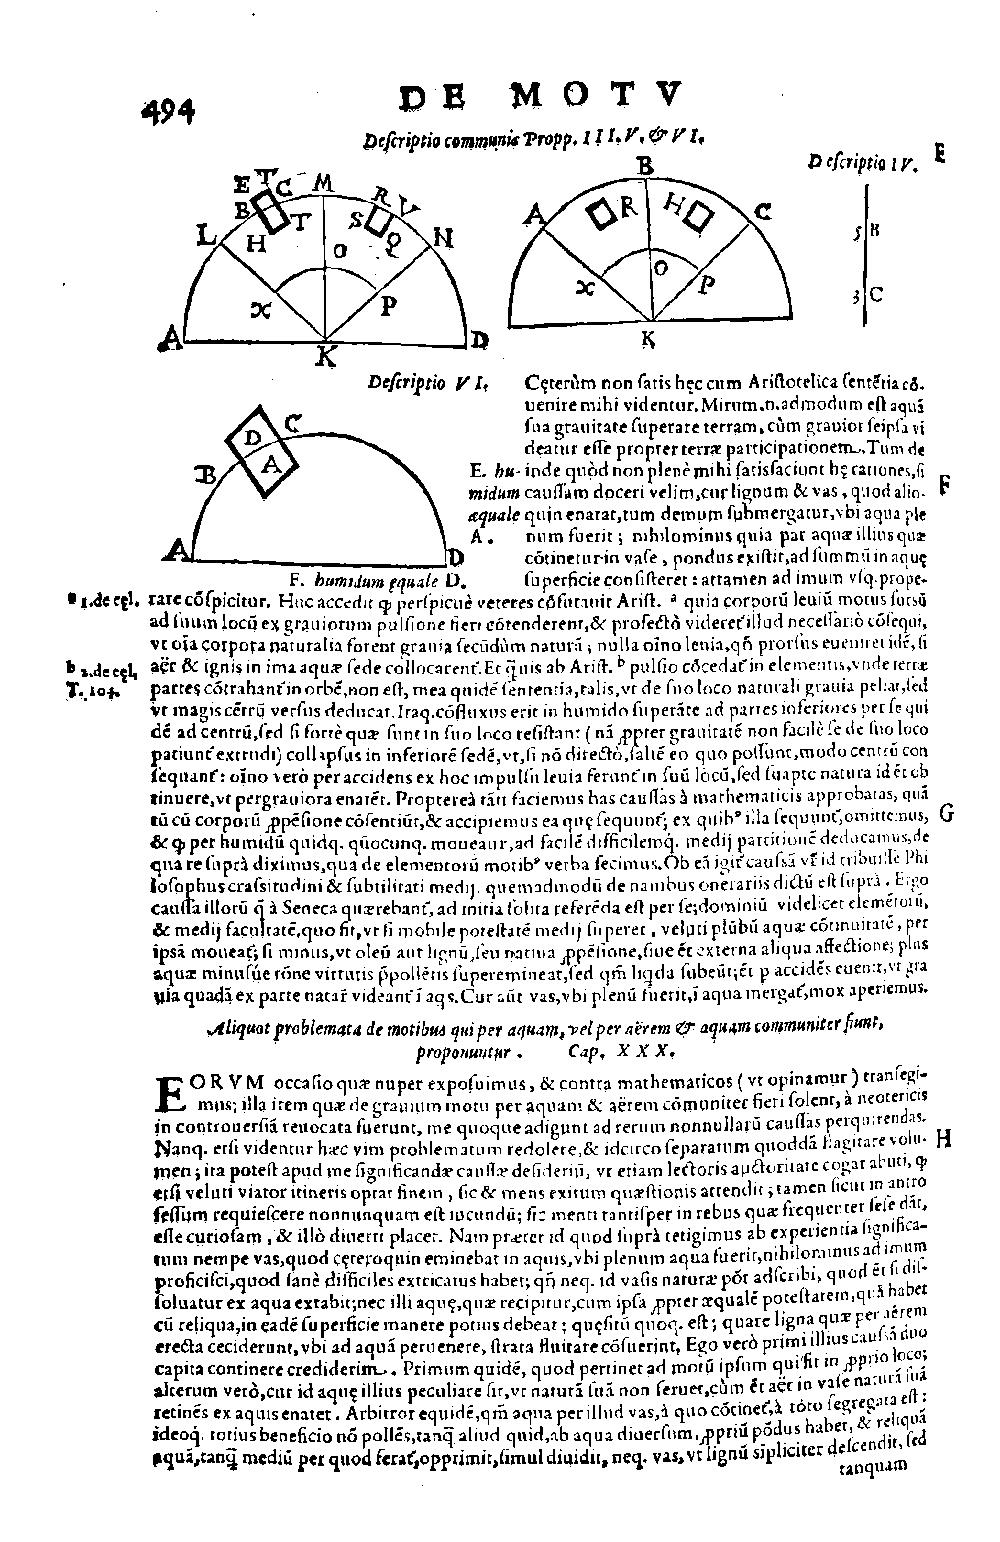 494
DE MOTV
Descriptio communis Propp. III. V. & VI.
Descriptio IV.
E
E T C M R V
B T S
L H O Q N
x P
A K D
B
A R H C
O
x P
K
5 B
3 C
Descriptio VI.
C
D
B A
A D
F. humidum ęquale D.
E. hu-
midum
æquale
A.
Cęterùm non satis hęc cum Aristotelica sentẽtia cõ-
uenire mihi videntur. Mirum.n.admodum est aquã
sua grauitate superare terram, cùm grauior seipsa vi
deatur esse propter terræ participationem. Tum de
inde quòd non plenè mihi satisfaciunt hę rationes, si
caussam doceri velim, cur lignum & vas, quod alio-
quin enatat, tum demum submergatur, vbi aqua ple
num fuerit; nihilominus quia par aquæ illius quæ
cõtinetur in vase, pondus existit, ad summũ in aquę
superficie consisteret: attamen ad imum vsq. prope-
F
a 1.de cęl.
rare cõspicitur. Huc accedit ꝙ perspicuè veteres cõfutauit Arist. a quia corporũ leuiũ motus sursũ
ad suum locũ ex grauiorum pulsione fieri cõtenderent, & profectò videret᷑ illud necessariò cõsequi,
vt oĩa corpora naturalia forent grauia secũdùm naturã; nulla oĩno leuia, qñ prorsus eueniret idẽ, si
b 2.de cęl,
T. 104.
aër & ignis in ima aquæ sede collocarent᷑. Et q̃uis ab Arist. b pulsio cõcedat᷑ in elementis, vnde terræ
partes cõtrahant᷑ in orbẽ, non est, mea quidẽ sententia, talis, vt de suo loco naturali grauia pellat, sed
vt magis cẽtrũ versus deducat. Itaq. cõfluxus erit in humido superãte ad partes inferiores per se qui
dẽ ad centrũ, sed si fortè quæ sunt in suo loco resistant (nã ꝓpter grauitatẽ non facilè se de suo loco
patiunt᷑ extrudi) collapsus in inferiorẽ sedẽ, vt, si nõ directò, saltẽ eo quo possunt, modo centrũ con
sequant᷑: oĩno verò per accidens ex hoc impulsu leuia ferunt᷑ in suũ locũ, sed suapte natura id ẽt ob
tinuere, vt per grauiora enatẽt. Proptereà tãti faciemus has caussas à mathematicis approbatas, quã
tũ cũ corporũ ꝓpẽsione cõsentiũt, & accipiemus ea quę sequunt᷑; ex quibꝰ illa sequunt᷑, omittemus,
G
& ꝙ per humidũ quidq. quocunq. moueatur, ad facilẽ difficilemq. medij partitionẽ deducamus, de
qua re suprà diximus, qua de elementorũ motibꝰ verba fecimus. Ob eã igit᷑ caussã vr̃ id tribuisse Phi
losophus crassitudini & subtilitati medij. quemadmodũ de nauibus onerariis dictũ est suprà. Ergo
caussa illorũ q̃ à Seneca quærebant᷑, ad initia solita referẽda est per se; dominiũ videlicet elemẽtorũ,
& medij facultatẽ, quo fit, vt si mobile potestatẽ medij superet, veluti plũbũ aquæ cõtinuitatẽ, per
ipsã moueat᷑; si minus, vt oleũ aut lignũ, seu natiua ꝓpẽsione, siue ẽt externa aliqua affectione; plus
aquæ minusúe rõne virtutis p̃pollẽtis superemineat, sed qm̃ liqda subeũt; ẽt p accidẽs euenit, vt gra
uia quadã ex parte natar̃ videant᷑ ĩ aqs. Cur aũt vas, vbi plenũ fuerit, ĩ aqua mergat᷑, mox aperiemus.
Aliquot problemata de motibus qui per aquam, vel per aërem & aquam communiter fiunt,
proponuntur. Cap. XXX.
EORVM occasio quæ nuper exposuimus, & contra mathematicos (vt opinamur) transegi-
mus; illa item quæ de grauium motu per aquam & aërem cõmuniter fieri solent, à neotericis
in controuersiã reuocata fuerunt, me quoque adigunt ad rerum nonnullarũ caussas perquirendas.
H
Nanq. etsi videntur hæc vim problematum redolere, & idcirco separatum quoddã flagitare volu-
men; ita potest apud me significandæ caussæ desideriũ, vt etiam lectoris auctoritate cogar abuti, ꝙ
etsi veluti viator itineris optat finem, sic & mens exitum quæstionis attendit; tamen sicut in antro
fessum requiescere nonnunquam est iucundũ; sic menti tantisper in rebus quæ frequenter sese dãt,
esse curiosam, & illò diuerti placet. Nam præter id quod suprà tetigimus ab experientia significa-
tum nempe vas, quod cęteroquin eminebat in aquis, vbi plenum aqua fuerit, nihilominus ad imum
proficisci, quod sanè difficiles extricatus habet; qñ neq. id vasis naturæ põt adscribi, quod ẽt si dis-
soluatur ex aqua extabit; nec illi aquę, quæ recipitur, cum ipsa ꝓpter æqualẽ potestatem, quã habet
cũ reliqua, in eadẽ superficie manere potius debeat; quęsitũ quoq. est; quare ligna quæ per aërem
erecta ceciderunt, vbi ad aquã peruenere, strata fluitare cõsuerint, Ego verò primi illius caussã duo
capita continere crediderim. Primum quidẽ, quod pertinet ad motũ ipsum qui fit in ꝓprio loco;
alterum verò, cur id aquę illius peculiare sit, vt naturã suã non seruet, cùm ẽt aër in vase naturã suã
retinẽs ex aquis enatet. Arbitror equidẽ, qm̃ aqua per illud vas, à quo cõtinet᷑, à toto segregata est;
ideoq. totius beneficio nõ pollẽs, tanq̃ aliud quid, ab aqua diuersum, ꝓpriũ põdus habet, & reliquã
aquã, tanq̃ mediũ per quod ferat᷑, opprimit, simul diuidit, neq. vas, vt lignũ sĩpliciter descendit, sed
tanquam